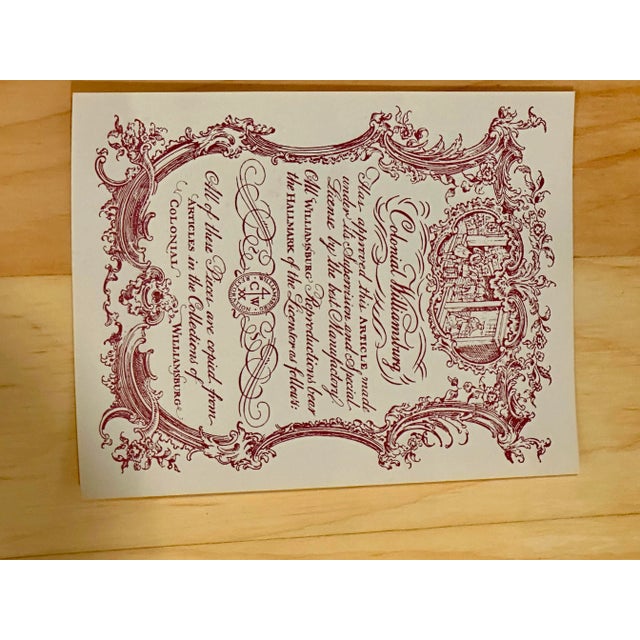 Colonial Williamsburg
Have approved this ARTICLE, made
under its Supervision and Special
License by the sole Manufacturer.
All WILLIAMSBURG Reproductions bear
the HALLMARK of the Licensor as follows:
CW
All of these Pieces are copied from
ARTICLES in the Collections of
COLONIAL WILLIAMSBURG